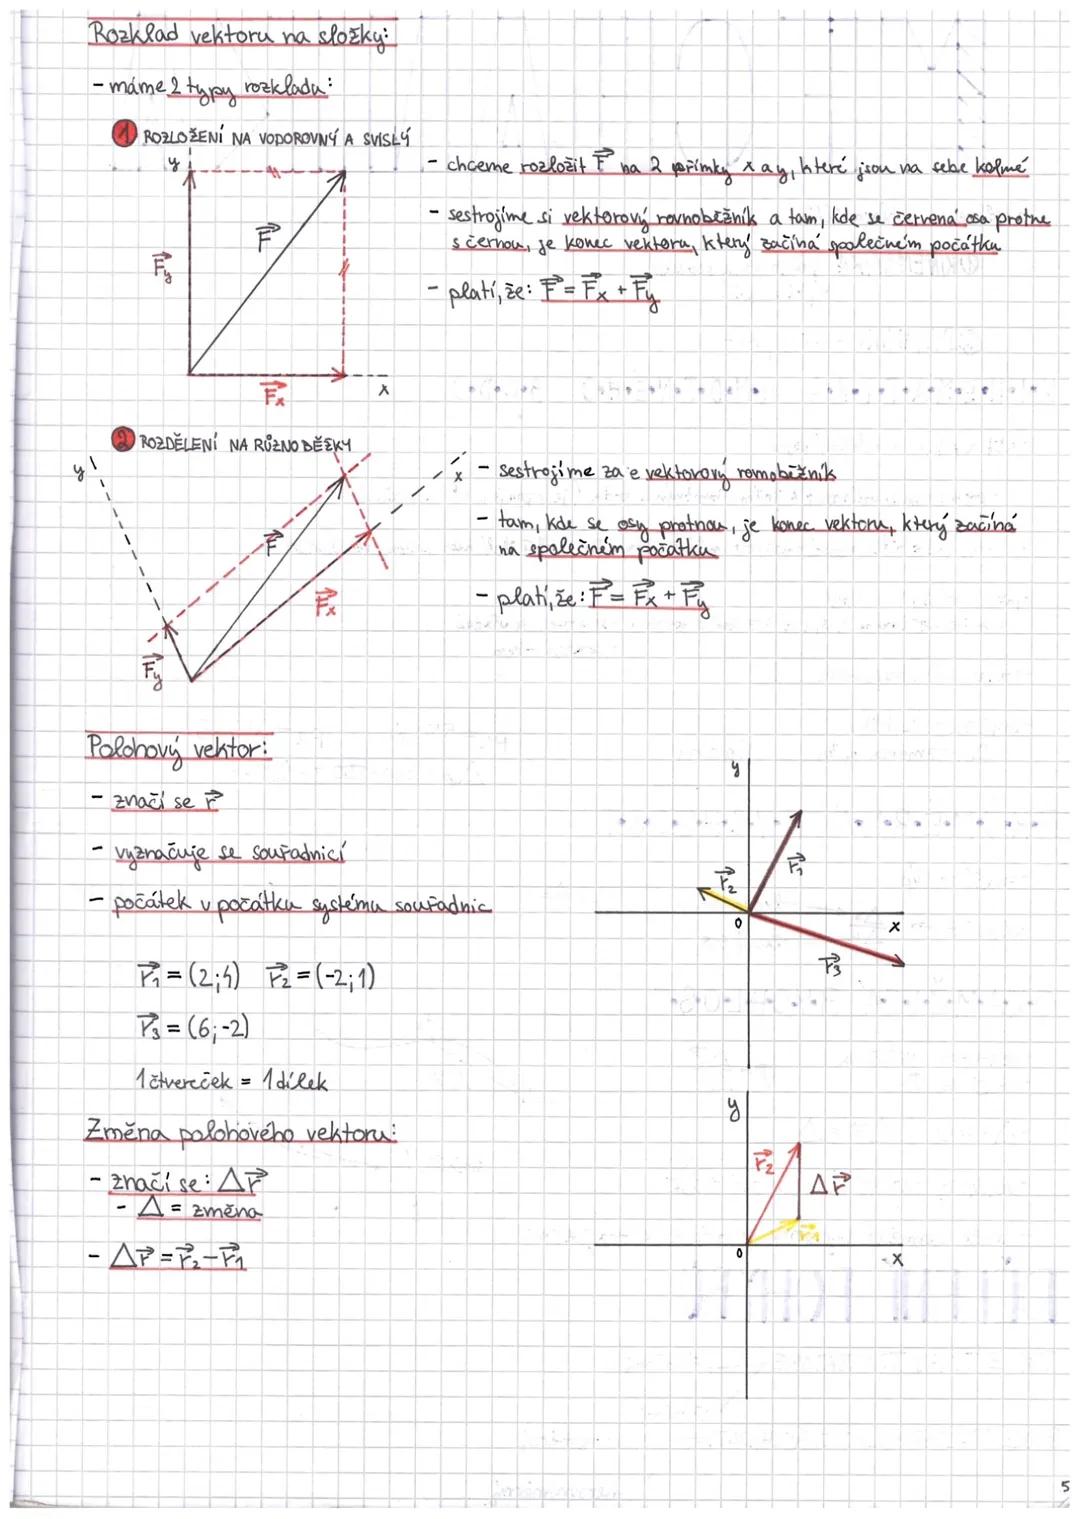 Rozklad vektoru na složky:
- máme 2 typy rozkladu:
1 ROZLOŽENÍ NA VODOROVNÝ A SVISLÝ
y
F
Fy
Fx
x
- chceme rozložit F na 2 přímky x a y, které jsou na sebe kolmé
- sestrojíme si vektorový rovnoběžník a tam, kde se červená osa protne
s černou, je konec vektoru, který začíná společném počátku
- platí, že: F = Fx + Fy
2 ROZDĚLENÍ NA RŮZNOBĚŽKY
y
x
F
Fx
Fy
- sestrojíme za e vektorový rovnoběžník
- tam, kde se osy protnou, je konec vektoru, který začíná
na společném počátku
- platí, že: F = Fx + Fy
Polohový vektor:
- značí se r
- vyznačuje se souřadnicí
- počátek v počátku systému souřadnic
r1 = (2;4) r2 = (-2;1)
r3 = (6;-2)
1 čtvereček = 1 dílek
y
r1
r2
0
x
r3
Změna polohového vektoru:
- značí se: Δr
- Δ = změna
- Δr = r2 - r1
y
r2
Δr
r1
0
x
5